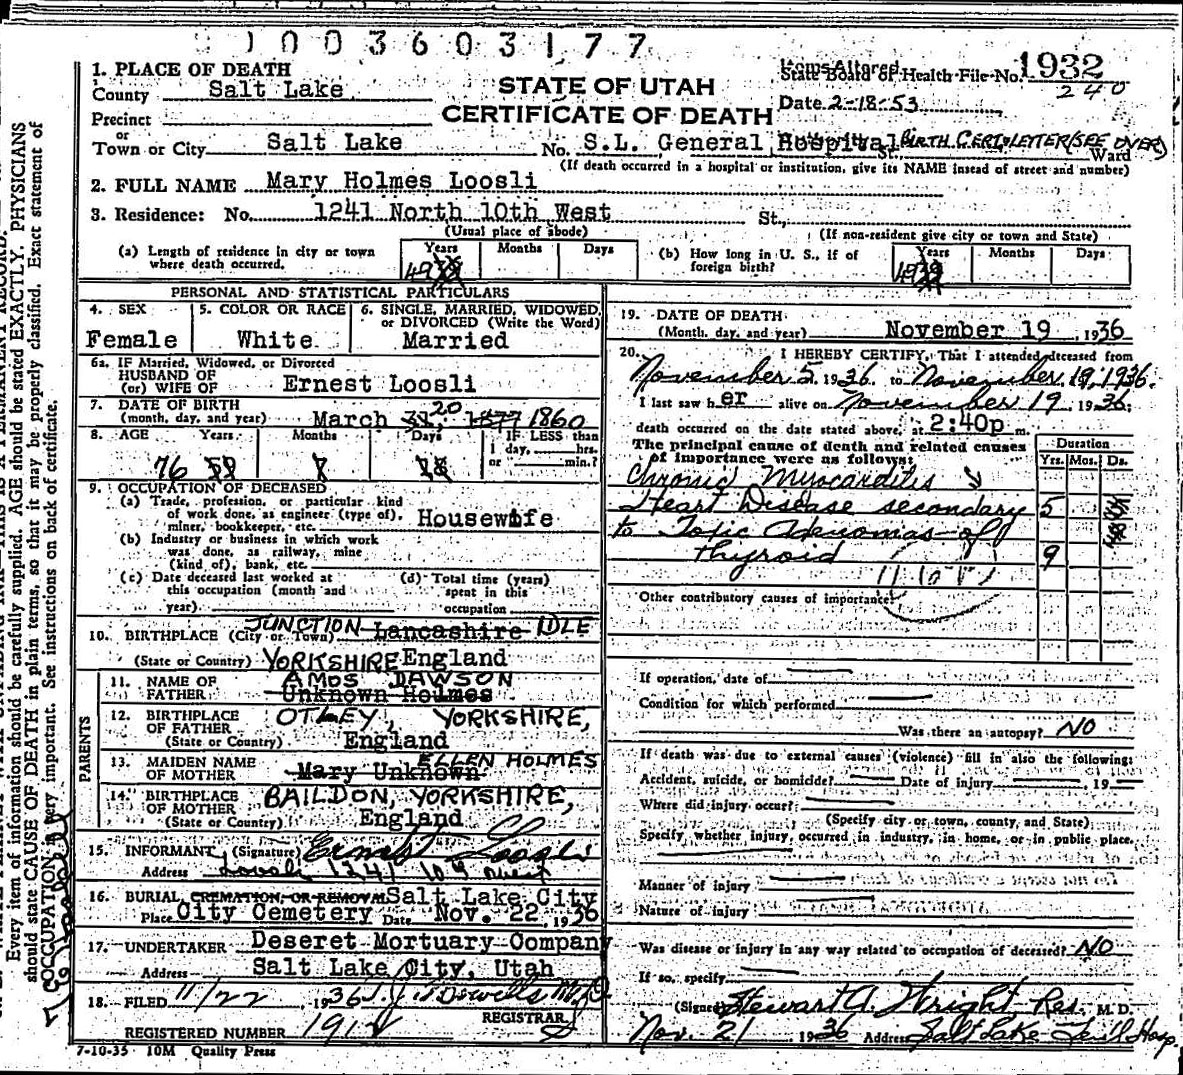 1003603177
1. PLACE OF DEATH
County Salt Lake
STATE OF UTAH
CERTIFICATE OF DEATH
Items Altered
State Board of Health File No. 1932
240
Date 2-18-53
Precinct
or
Town or City Salt Lake No. S.L. General Hospital St., Ward
BIRTH CERT. LETTER (SEE OVER)
(If death occurred in a hospital or institution, give its NAME insead of street and number)
2. FULL NAME Mary Holmes Loosli
3. Residence: No. 1241 North 10th West St.,
(Usual place of abode) (If non-resident give city or town and State)
(a) Length of residence in city or town where death occurred. Years 49 Months Days
(b) How long in U. S., if of foreign birth? Years 49 Months Days
PERSONAL AND STATISTICAL PARTICULARS
4. SEX Female
5. COLOR OR RACE White
6. SINGLE, MARRIED, WIDOWED, or DIVORCED (Write the Word) Married
6a. IF Married, Widowed, or Divorced
HUSBAND OF
(or) WIFE OF Ernest Loosli
7. DATE OF BIRTH
(month, day, and year) March 31, 20 1877 1860
8. AGE Years 76 59 Months 7 Days 18 IF LESS than
1 day, hrs.
or min.?
9. OCCUPATION OF DECEASED
(a) Trade, profession, or particular kind
of work done, as engineer (type of),
miner, bookkeeper, etc. Housewife
(b) Industry or business in which work
was done, as railway, mine
(kind of), bank, etc.
(c) Date deceased last worked at
this occupation (month and
year)
(d) Total time (years)
spent in this
occupation
10. BIRTHPLACE (City or Town) JUNCTION Lancashire IDLE
(State or Country) YORKSHIRE England
PARENTS
11. NAME OF
FATHER AMOS DAWSON
Unknown Holmes
12. BIRTHPLACE
OF FATHER OTLEY, YORKSHIRE,
(State or Country) England
13. MAIDEN NAME
OF MOTHER ELLEN HOLMES
Mary Unknown
14. BIRTHPLACE
OF MOTHER BAILDON, YORKSHIRE,
(State or Country) England
15. INFORMANT (Signature) Ernest Loosli
Address 1241
16. BURIAL, CREMATION, OR REMOVAL Salt Lake City
Place City Cemetery Date Nov. 22, 1936
17. UNDERTAKER Deseret Mortuary Company
Address Salt Lake City, Utah
18. FILED 11/22, 1936
REGISTRAR
REGISTERED NUMBER 191
7-10-35 10M Quality Press
19. DATE OF DEATH
(Month, day, and year) November 19, 1936
20. I HEREBY CERTIFY, That I attended deceased from
November 5, 1936 to November 19, 1936.
I last saw her alive on November 19, 1936;
death occurred on the date stated above, at 2:40p m.
The principal cause of death and related causes
of importance were as follows:
Duration
Yrs. Mos. Ds.
Chronic Myocarditis
Heart Disease secondary 5
to Toxic Adenomas of
thyroid 9
Other contributory causes of importance:
If operation, date of
Condition for which performed
Was there an autopsy? NO
If death was due to external causes (violence) fill in also the following:
Accident, suicide, or homicide? Date of injury , 19
Where did injury occur?
(Specify city or town, county, and State)
Specify whether injury occurred in industry, in home, or in public place.
Manner of injury
Nature of injury
Was disease or injury in any way related to occupation of deceased? NO
If so, specify
(Signed) Stewart A. Wright Res. M. D.
Nov. 21 1936 Address Salt Lake Hosp.
Every item of information should be carefully supplied. AGE should be stated EXACTLY. PHYSICIANS
should state CAUSE OF DEATH in plain terms, so that it may be properly classified. Exact statement of
OCCUPATION is very important. See instructions on back of certificate.